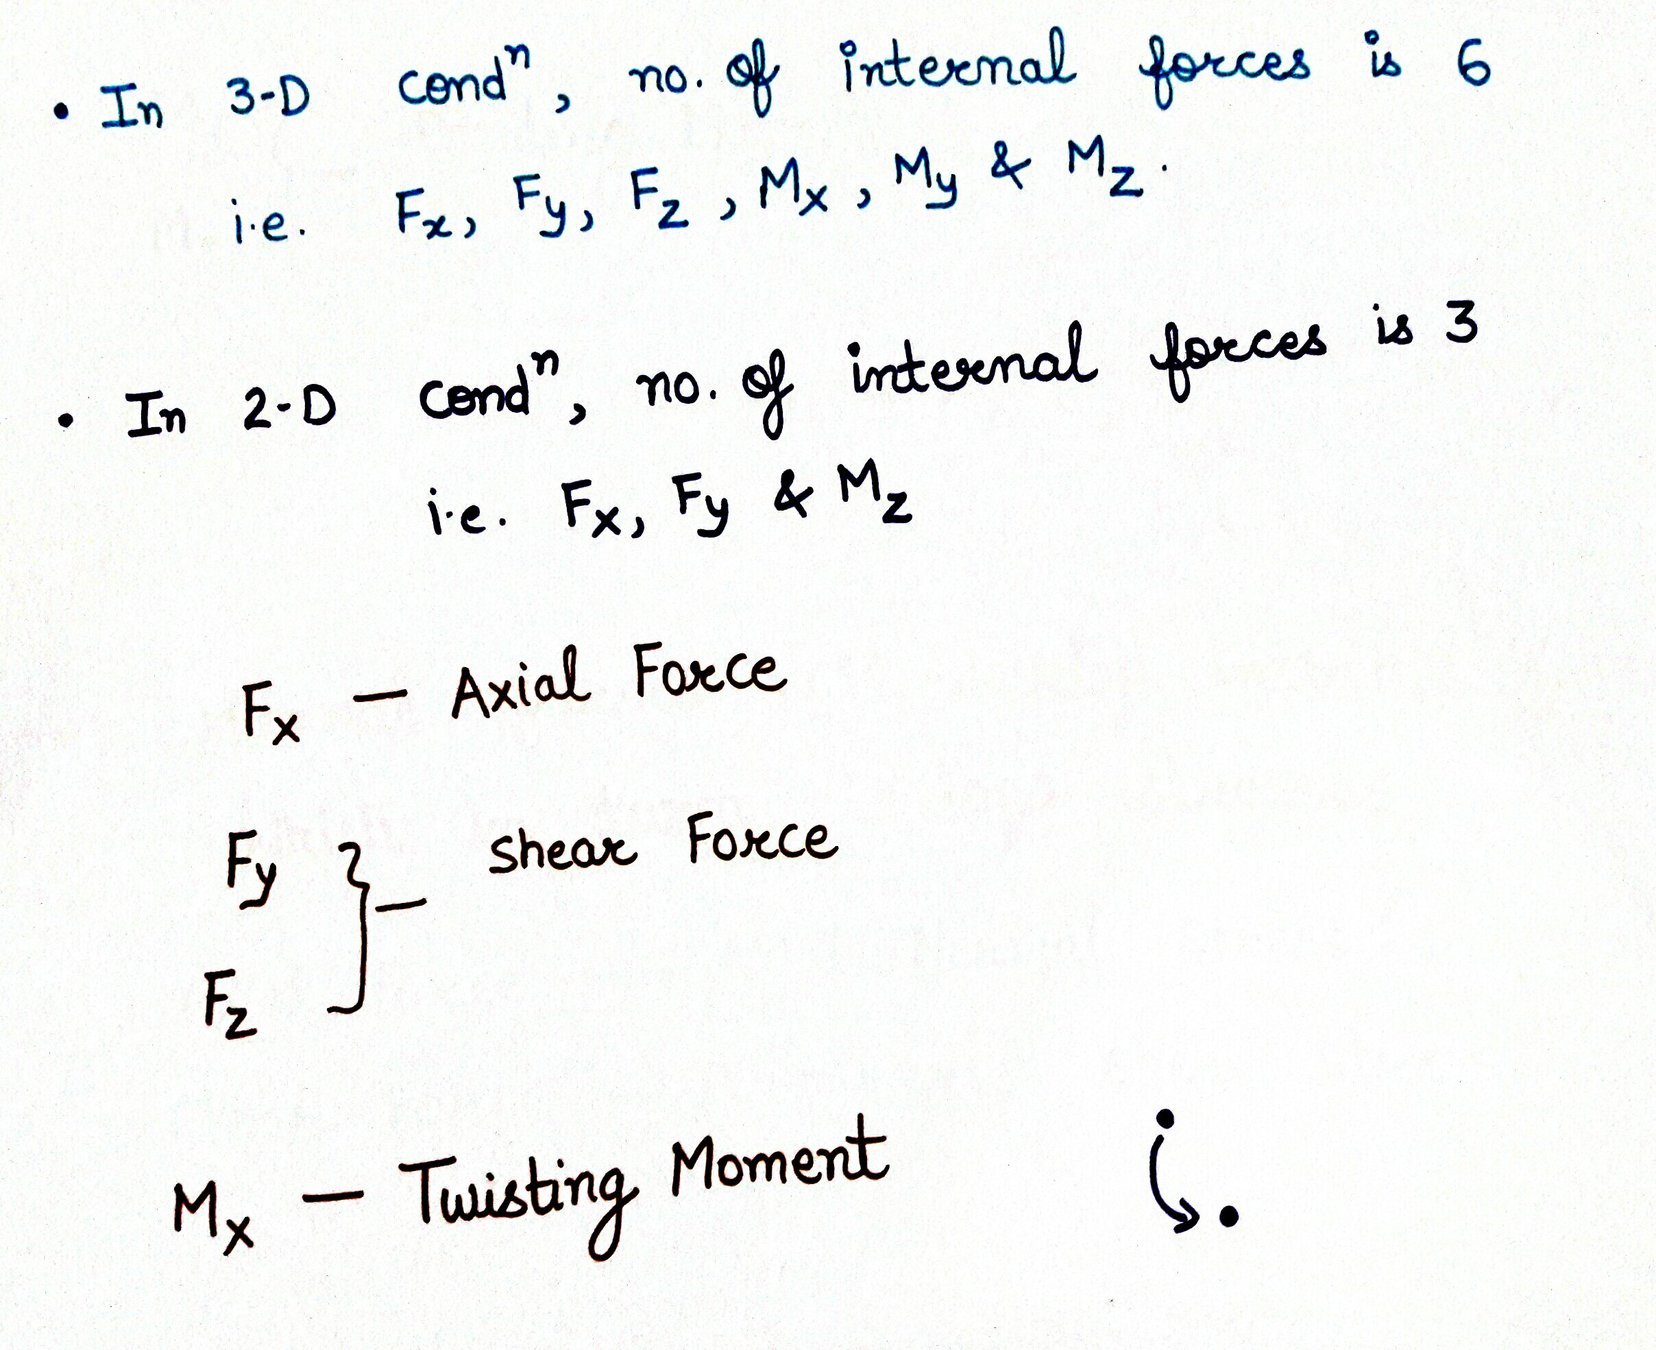 • In 3-D condⁿ, no. of internal forces is 6
i.e. Fx, Fy, Fz, Mx, My & Mz.
• In 2-D condⁿ, no. of internal forces is 3
i.e. Fx, Fy & Mz
Fx — Axial Force
Fy } — Shear Force
Fz
Mx — Twisting Moment